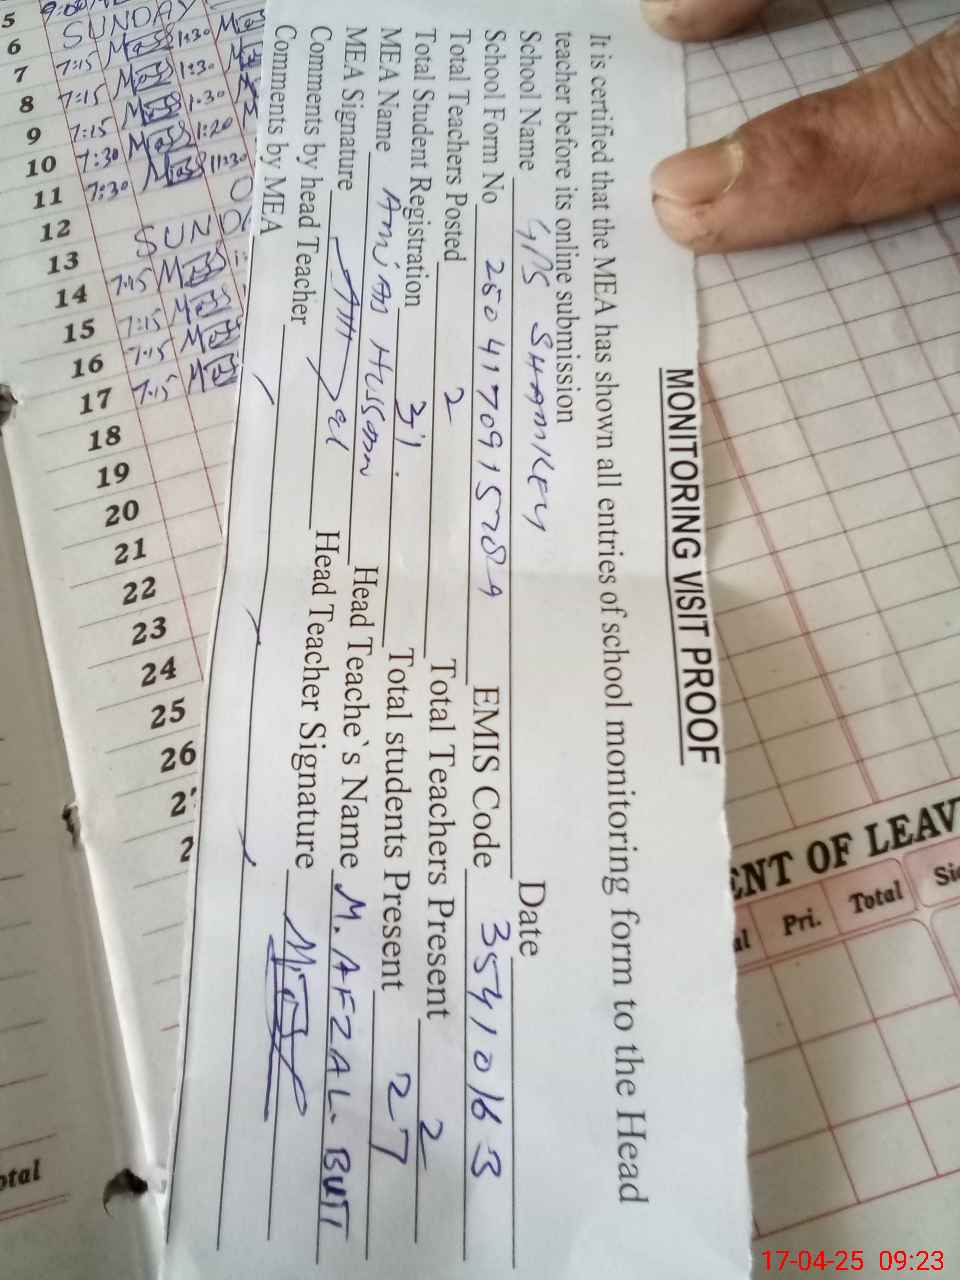 MONITORING VISIT PROOF
It is certified that the MEA has shown all entries of school monitoring form to the Head
teacher before its online submission
School Name G/PS SHAMKEY Date
School Form No EMIS Code 35410163
Total Teachers Posted 2 Total Teachers Present 2
Total Student Registration 31 Total students Present 27
MEA Name Amjad Hussan Head Teache`s Name M. AFZAL. BUTT
MEA Signature Head Teacher Signature
Comments by head Teacher
Comments by MEA
5 9:00
6 SUNDAY
7 7:15 1:30
8 7:15 1:30
9 7:15 1.30
10 7:30 1:20
11 7:30 11:30
12
13 SUND
14 7:15
15 7:15
16 7.15
17 7.15
18
19
20
21
22
23
24
25
26
2
2
otal
ENT OF LEAV
al Pri. Total Sic
17-04-25 09:23